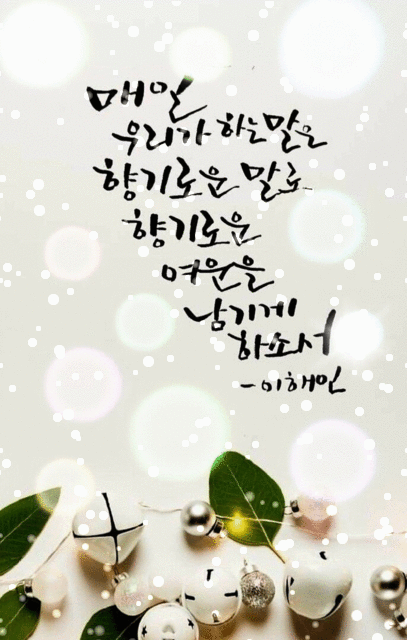 매일
우리가 하는 말은
향기로운 말로
향기로운
여운을
남기게
하소서
- 이해인